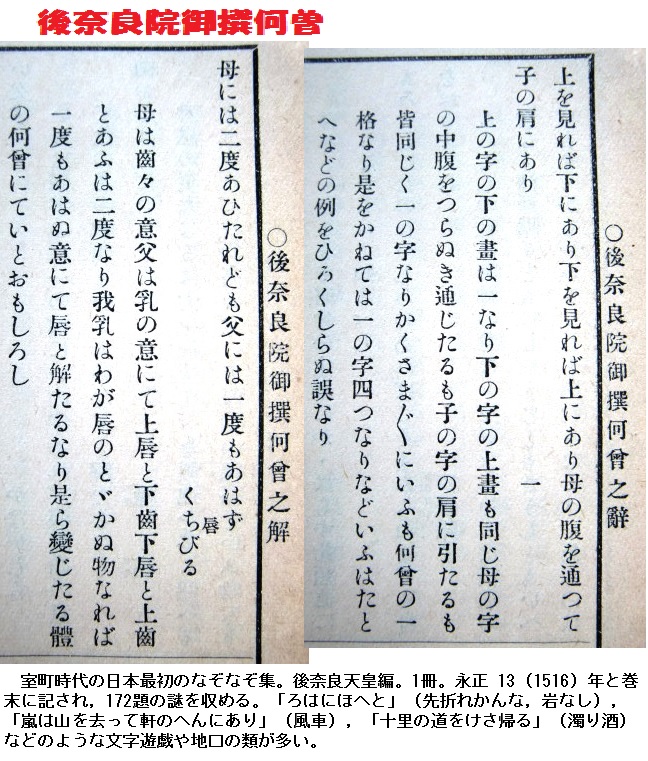 後奈良院御撰何曾
〇後奈良院御撰何曾之辭
上を見れば下にあり下を見れば上にあり母の腹を通つて
子の肩にあり
一
上の字の下の畫は一なり下の字の上畫も同じ母の字
の中腹をつらぬき通じたるも子の字の肩に引たるも
皆同じく一の字なりかくさま〴〵にいふも何曾の一
格なり是をかねては一の字四つなりなどいふはたと
へなどの例をひろくしらぬ誤なり
〇後奈良院御撰何曾之解
母には二度あひたれども父には一度もあはず
唇
くちびる
母は齒々の意父は乳の意にて上唇と下齒下唇と上齒
とあふは二度なり我乳はわが唇のとゞかぬ物なれば
一度もあはぬ意にて唇と解たるなり是ら變じたる體
の何曾にていとおもしろし
室町時代の日本最初のなぞなぞ集。後奈良天皇編。1冊。永正 13（1516）年と巻
末に記され，172題の謎を収める。「ろはにほへと」（先折れかんな，岩なし），
「嵐は山を去って軒のへんにあり」（風車），「十里の道をけさ帰る」（濁り酒）
などのような文字遊戯や地口の類が多い。